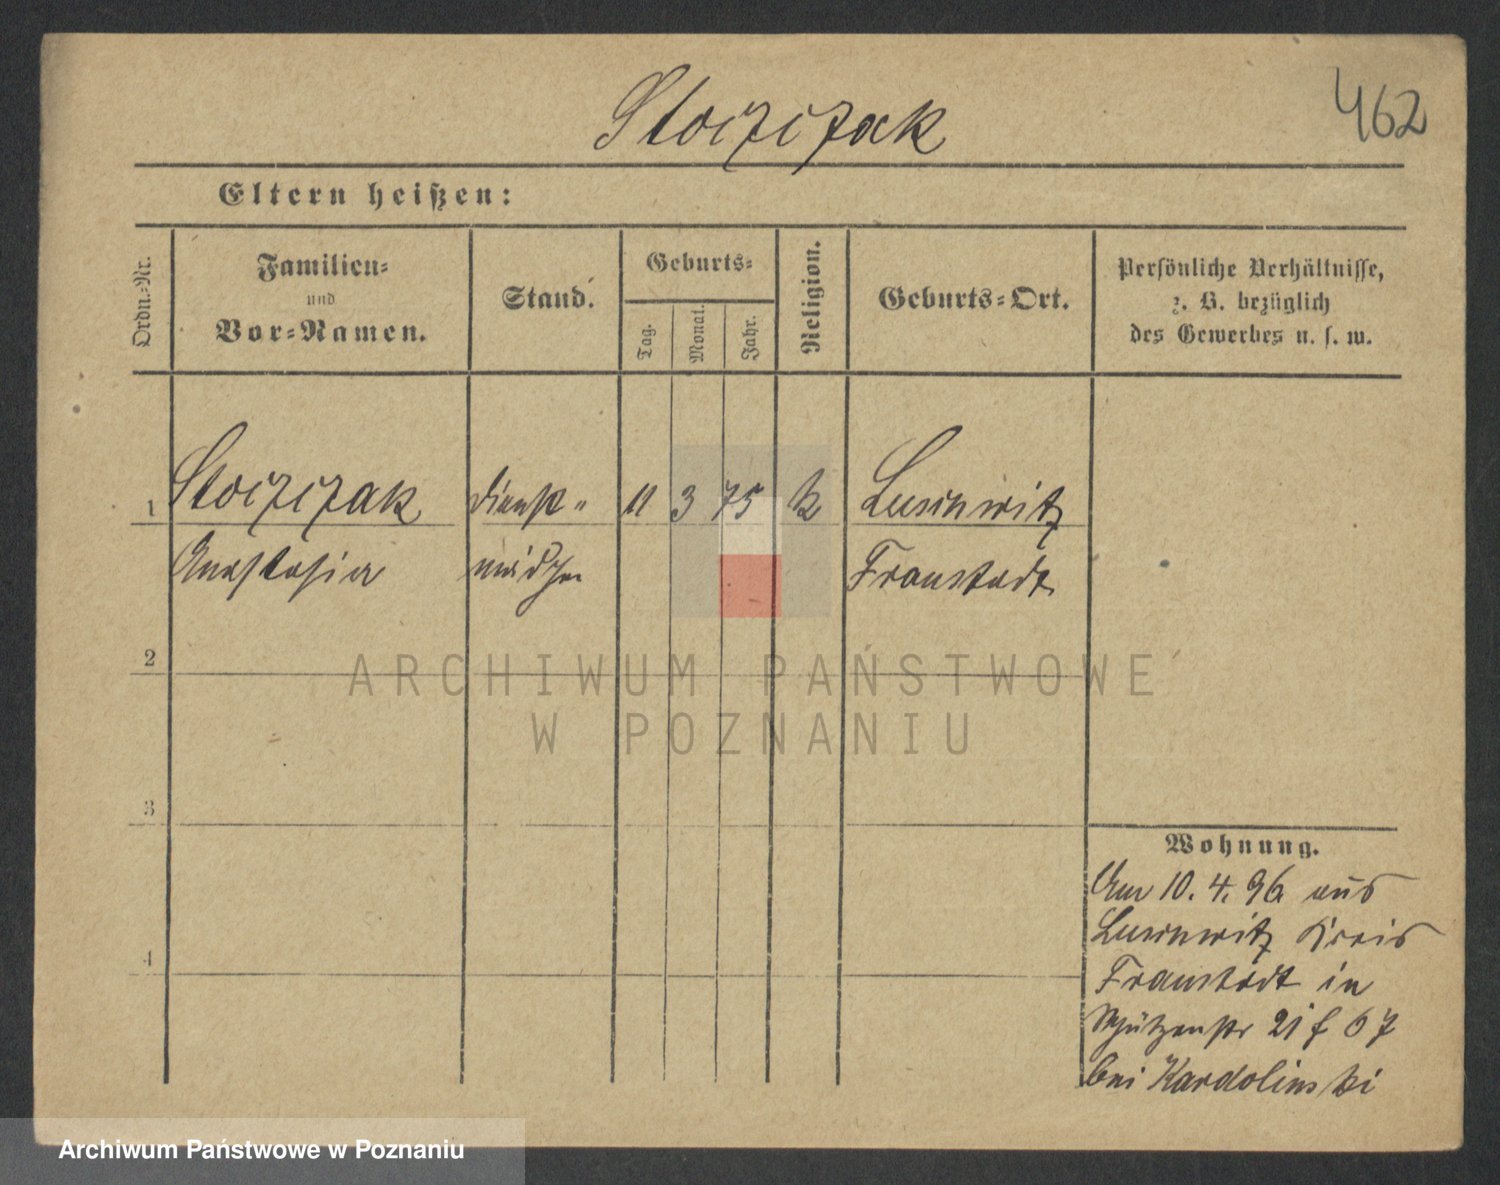 Stoizizak
462
Eltern heißen:
Ordn.-Nr.
Familien-
und
Vor-Namen.
Stand.
Geburts-
Tag.
Monat.
Jahr.
Religion.
Geburts-Ort.
Persönliche Verhältnisse,
z. B. bezüglich
des Gewerbes u. s. w.
1 Stoizizak Dienst- 11 3 75 k Luschwitz
Anastasia mädchen Fraustadt
2
ARCHIWUM PAŃSTWOWE
W POZNANIU
3
Wohnung.
Am 10.4.96 aus
Luschwitz Kreis
4
Fraustadt in
Schützenstr 21
bei Kardolinski
Archiwum Państwowe w Poznaniu